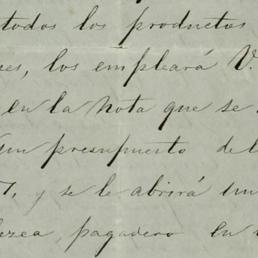 todos los productos
es, los empleará V.
en la nota que se
un presupuesto de
, y se le abrirá un
pagadero en